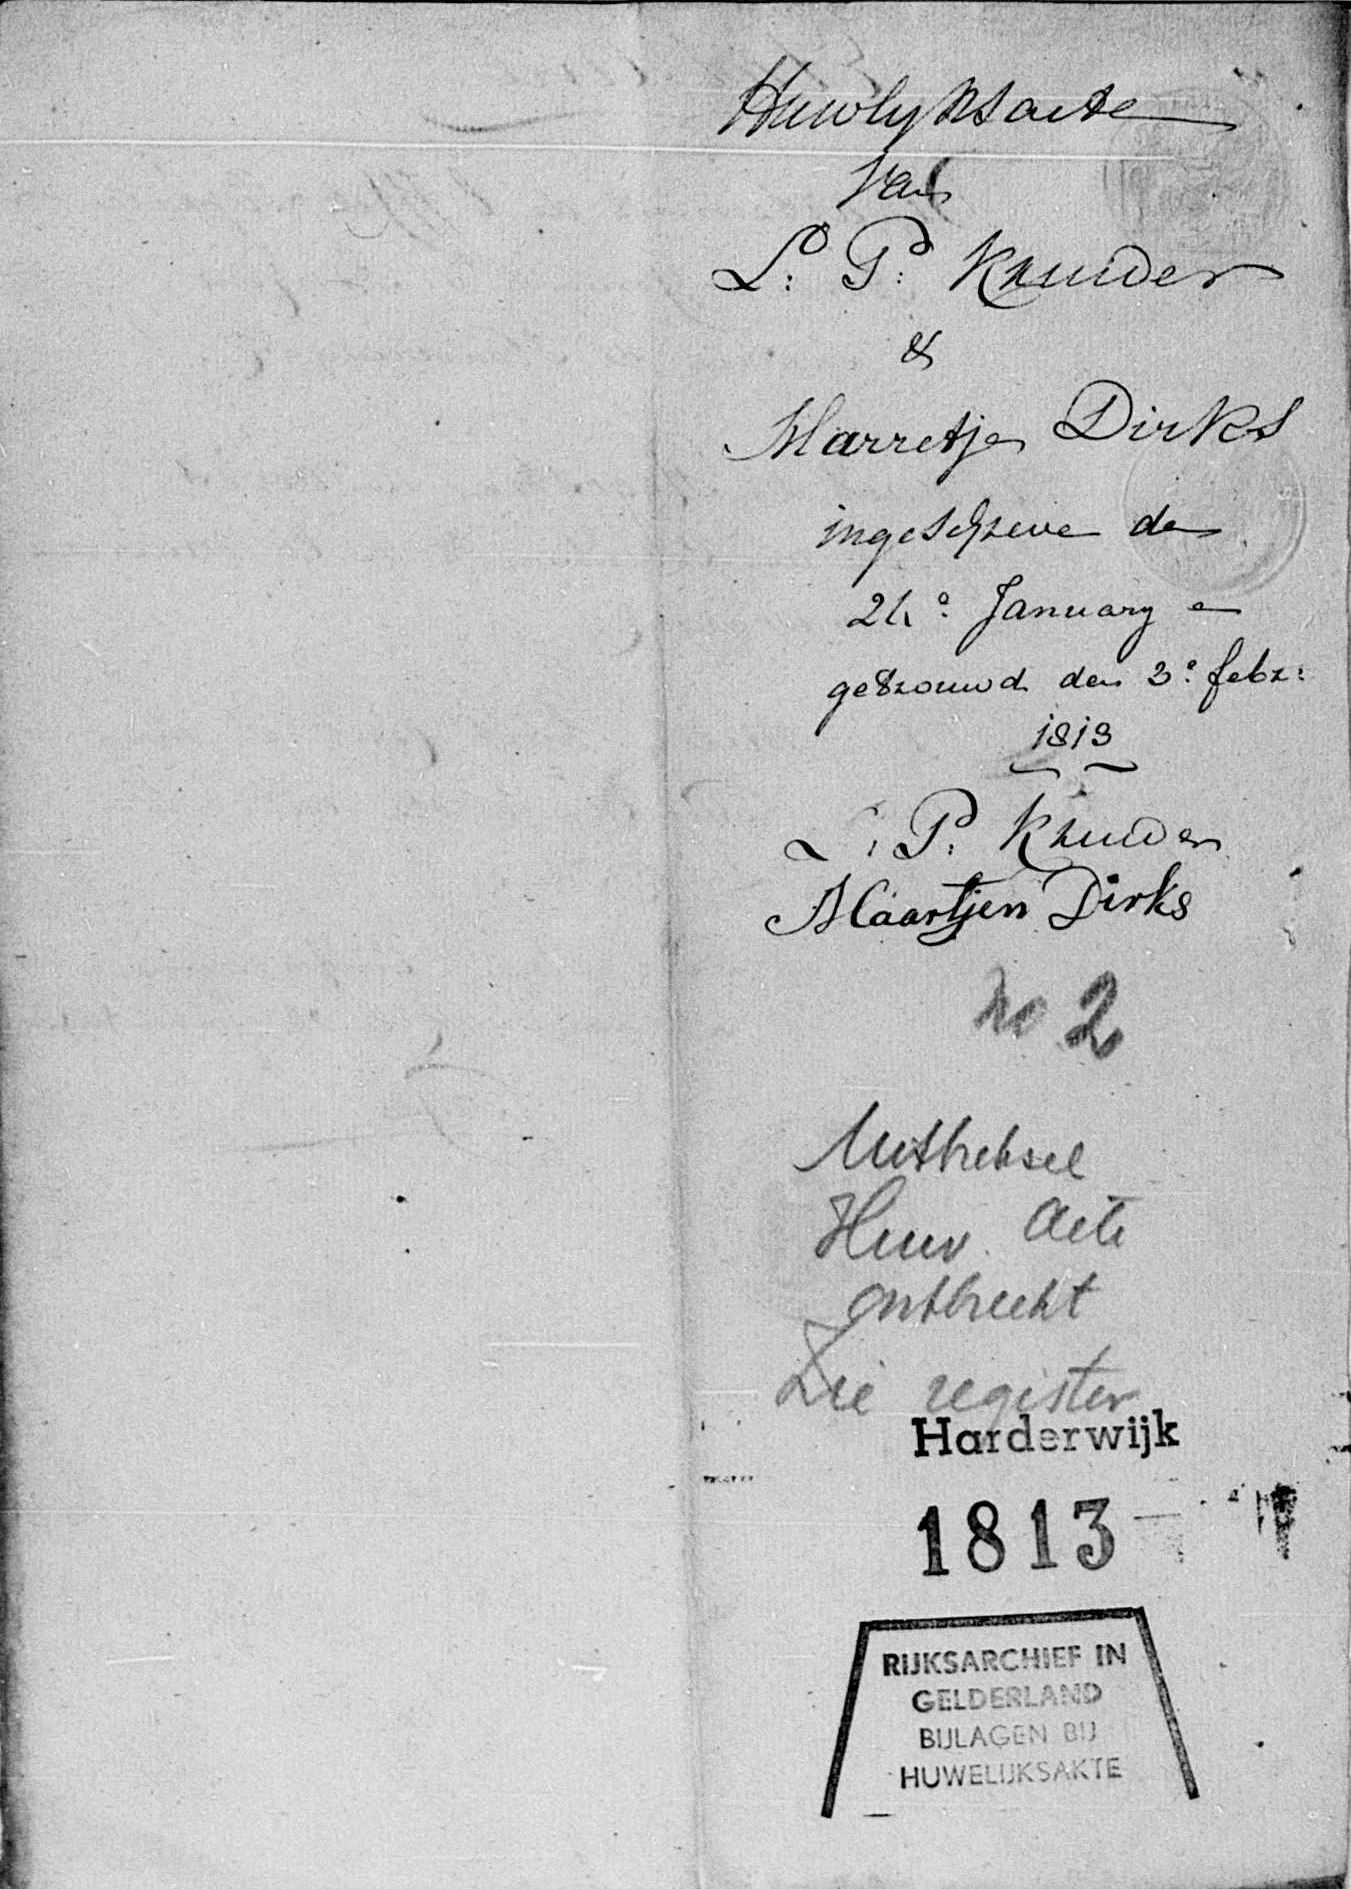 Huwlyksacte
van
L: P: Kruider
&
Marretje Dirks
ingeschreve den
24e January en
getrouwd den 3e febr:
1813
L: P: Kruider
Maartjen Dirks
no 2
Uittreksel
Huw. Acte
ontbreekt
Zie register
Harderwijk
1813
RIJKSARCHIEF IN
GELDERLAND
BIJLAGEN BIJ
HUWELIJKSAKTE